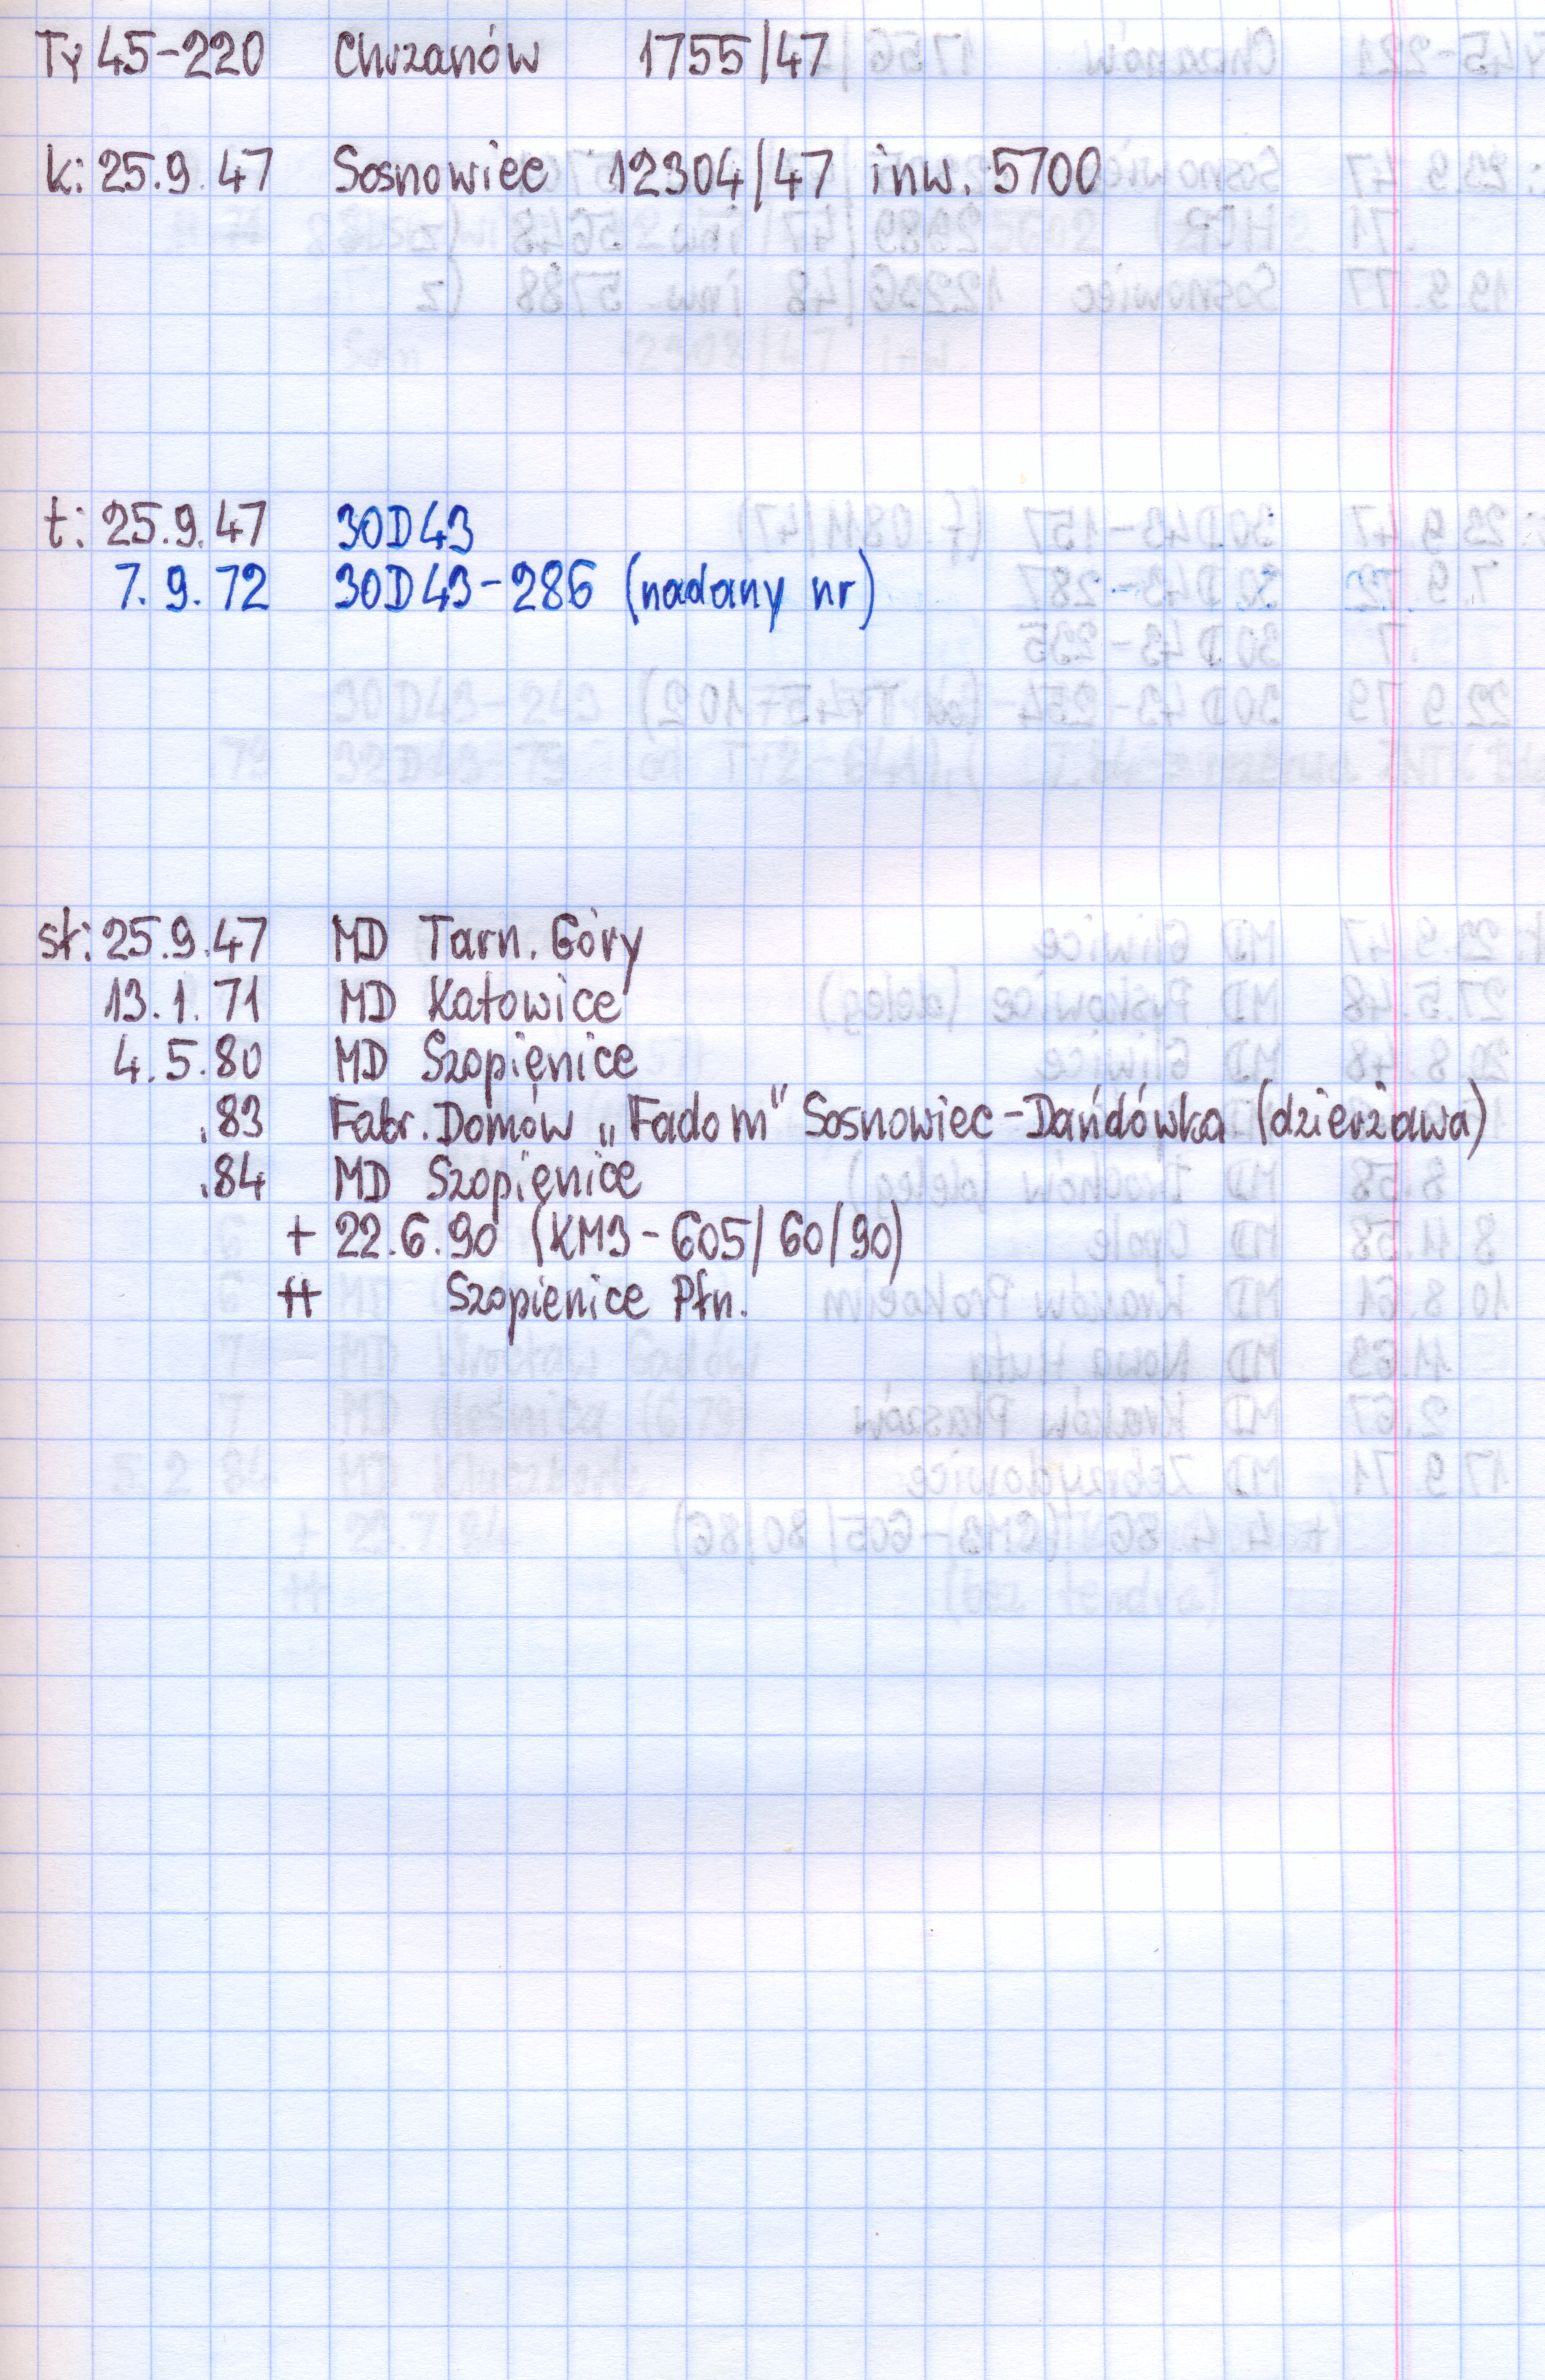 Ty45-220 Chrzanów 1755/47
k: 25.9.47 Sosnowiec 12304/47 inw. 5700
t: 25.9.47 30D43
7.9.72 30D43-286 (nadany nr)
st: 25.9.47 MD Tarn. Góry
13.1.71 MD Katowice
4.5.80 MD Szopienice
.83 Fabr. Domów „Fadom" Sosnowiec-Dańdówka (dzierżawa)
.84 MD Szopienice
+ 22.6.90 (KM3-605/60/90)
++ Szopienice Płn.